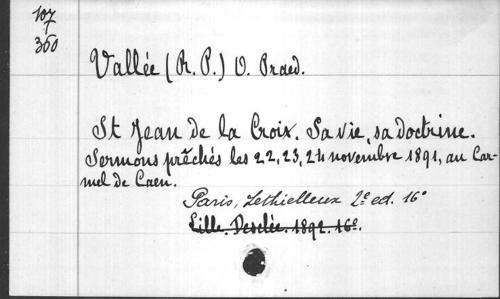 107
1
360
Vallée (R. P.) O. Praed.
St Jean de la Croix. Sa vie, sa doctrine.
Sermons prêchés les 22, 23, 24 novembre 1891, au Car-
mel de Caen.
Paris, Lethielleux 2e ed. 16°
Lille. Desclée. 1892. 16°.